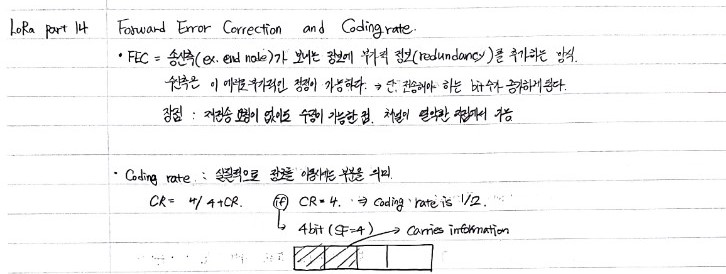 LoRa part 14 Forward Error Correction and Coding rate.
• FEC = 송신측(ex. end node)가 보내는 정보에 부가적 정보(redundancy)를 추가하는 방식.
수신측은 이 에러 추가적인 정정이 가능하다. → 단, 전송해야 하는 bit수가 증가하게 된다.
장점 : 재전송 요청이 없이도 수정이 가능한 점. 채널이 열악한 가능
• Coding rate : 실질적으로 정보를 부분을 의미.
CR = 4/4+CR. if CR = 4. ⇒ Coding rate is 1/2.
4bit (SF=4) → Carries information